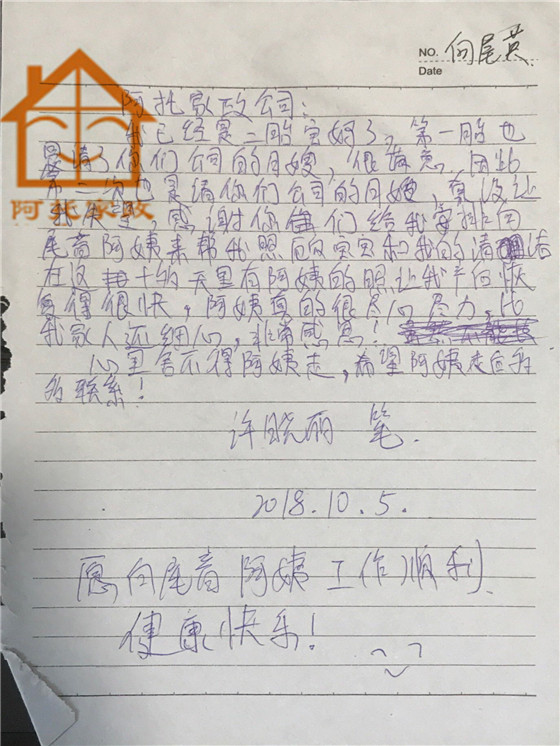 NO. 向尾英
Date
阿托家政公司:
我已经是二胎宝妈了,第一胎也
是请了你们公司的月嫂,很满意,因此
第二次也是请你们公司的月嫂,真没让
我失望,感谢你们给我安排向
尾音阿姨来帮我照顾宝宝和我的
在这十的天里有阿姨的照让我产后恢
复得很快,阿姨真的很尽心尽力,比
我家人还细心,非常感恩!
心里舍不得阿姨走,希望阿姨走后
联系!
许晓丽 笔.
2018.10.5.
愿向尾音阿姨工作顺利
健康快乐!
阿托家政